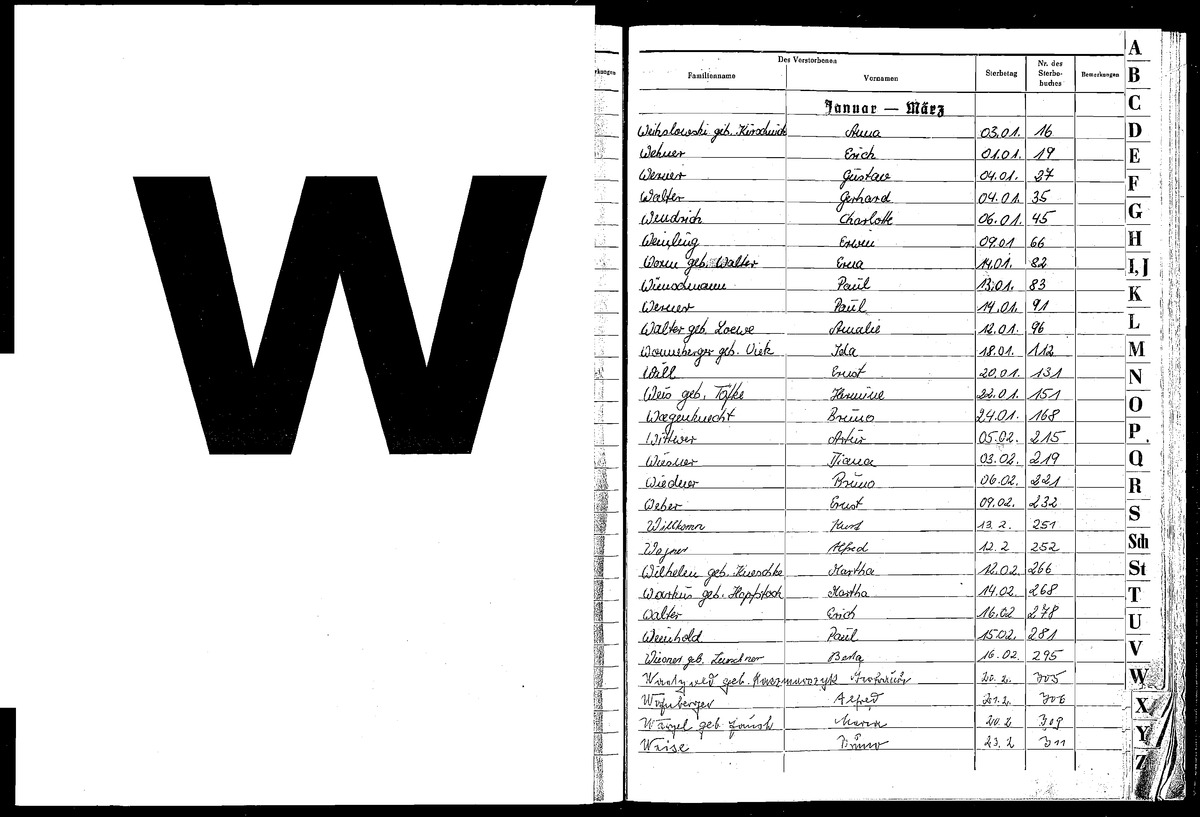 W
Des Verstorbenen
Familienname Vornamen Sterbetag Nr. des Sterbe-buches Bemerkungen
Januar — März
geb. Anna 03.01. 16
Wehner Erich 01.01. 19
Werner Gustav 04.01. 27
Walter Gerhard 04.01. 35
Wendrich Charlotte 06.01. 45
Weinling Erwin 09.01 66
Worm geb. Walter Erna 14.01. 82
Wünschmann Paul 13.01. 83
Werner Paul 14.01. 91
Walter geb. Loewe Amalie 12.01. 96
Wonneberger geb. Viek Ida 18.01. 112
Will Ernst 20.01. 131
Weis geb. Töfke Hermine 22.01. 151
Wagenknecht Bruno 24.01. 168
Wittwer Artur 05.02. 215
Wiesner 03.02. 219
Wiedner Bruno 06.02. 221
Weber Ernst 09.02. 232
Willkomm Kurt 13.2. 251
Wagner Alfred 12.2 252
Wilhelm geb. Kueschke Martha 12.02. 266
Warkus geb. Martha 14.02. 268
Walter Erich 16.02 278
Weinhold Paul 15.02. 281
Wiesner geb. Berta 16.02. 295
geb. Kaczmarczyk 20.2. 305
Alfred 21.2. 306
geb. Maria 20.2 309
Weise Bruno 23.2 311
A
B
C
D
E
F
G
H
I, J
K
L
M
N
O
P
Q
R
S
Sch
St
T
U
V
W
X
Y
Z